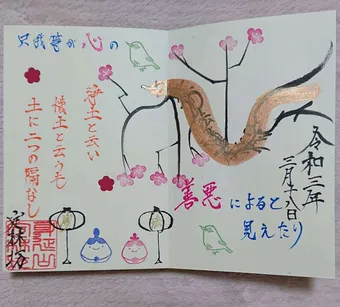 浄土と云い
穢土と云うも
土に二つの隔なし
只我等が心の
善悪によると
見えたり
令和三年
身延山
定林坊